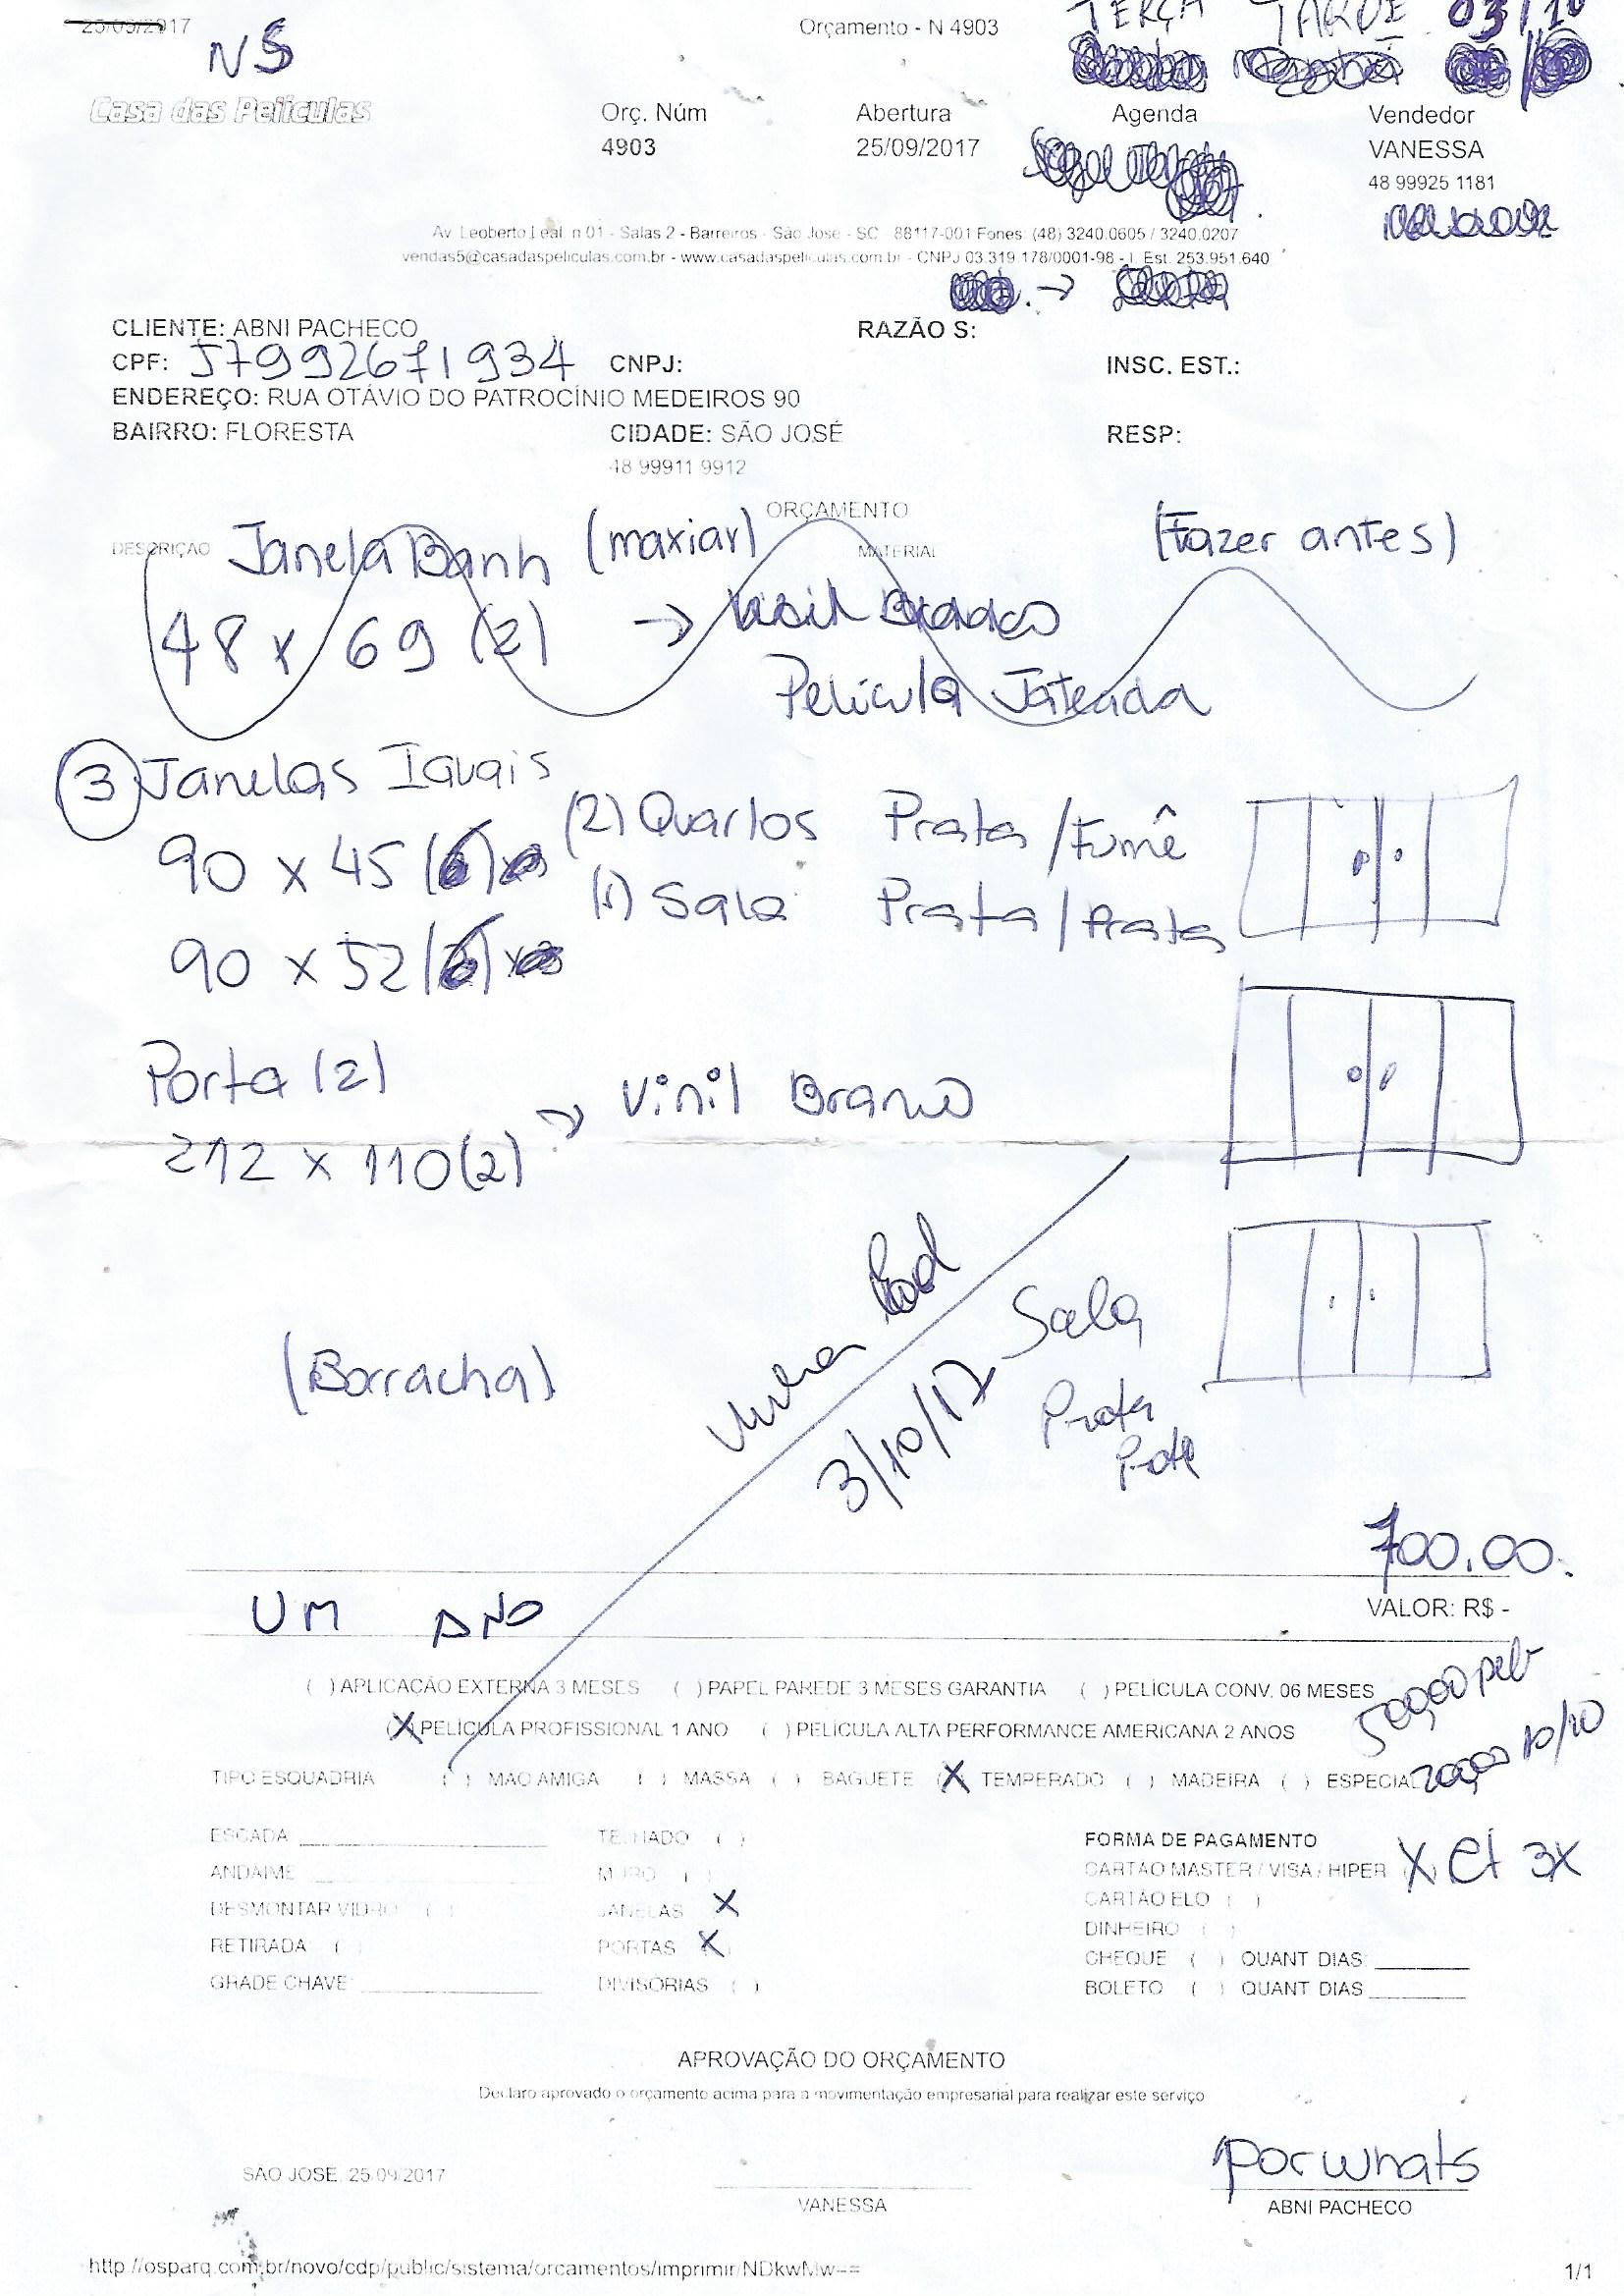 25/09/2017
Orçamento - N 4903
TERÇA TARDE 03/10
NS
Casa das Películas
Orç. Núm Abertura Agenda Vendedor
4903 25/09/2017 VANESSA
48 99925 1181
Av. Leoberto Leal, n 01 - Salas 2 - Barreiros - São José - SC - 88117-001 Fones: (48) 3240.0605 / 3240.0207
vendas5@casadaspeliculas.com.br - www.casadaspeliculas.com.br - CNPJ 03.319.178/0001-98 - I. Est. 253.951.640
CLIENTE: ABNI PACHECO RAZÃO S:
CPF: 57992671934 CNPJ: INSC. EST.:
ENDEREÇO: RUA OTÁVIO DO PATROCÍNIO MEDEIROS 90
BAIRRO: FLORESTA CIDADE: SÃO JOSÉ RESP:
48 99911 9912
ORÇAMENTO
DESCRIÇÃO MATERIAL
Janela Banh (maxiar) (Fazer antes)
48 x 69 (2) →
Película Jateada
3 Janelas Iguais
90 x 45 (6) (2) Quartos Prata/Fumê
(1) Sala Prata/Prata
90 x 52 (6)
Porta (2)
212 x 110 (2) → Vinil Branco
(Borracha)
3/10/17
Sala
Prata
Prata
700,00
UM ANO VALOR: R$ -
( ) APLICAÇÃO EXTERNA 3 MESES ( ) PAPEL PAREDE 3 MESES GARANTIA ( ) PELÍCULA CONV. 06 MESES
(X) PELÍCULA PROFISSIONAL 1 ANO ( ) PELÍCULA ALTA PERFORMANCE AMERICANA 2 ANOS
500,00
200,00 10/10
TIPO ESQUADRIA ( ) MÃO AMIGA ( ) MASSA ( ) BAGUETE (X) TEMPERADO ( ) MADEIRA ( ) ESPECIAL
ESCADA TELHADO ( ) FORMA DE PAGAMENTO
ANDAIME MURO ( ) CARTÃO MASTER / VISA / HIPER (X) Ct 3x
DESMONTAR VIDRO ( ) JANELAS X CARTÃO ELO ( )
RETIRADA ( ) PORTAS (X) DINHEIRO ( )
CHEQUE ( ) QUANT DIAS
GRADE CHAVE DIVISÓRIAS ( ) BOLETO ( ) QUANT DIAS
APROVAÇÃO DO ORÇAMENTO
Declaro aprovado o orçamento acima para a movimentação empresarial para realizar este serviço
SAO JOSE, 25/09/2017
por whats
VANESSA ABNI PACHECO
http://osparq.com.br/novo/cdp/public/sistema/orcamentos/imprimir/NDkwMw== 1/1